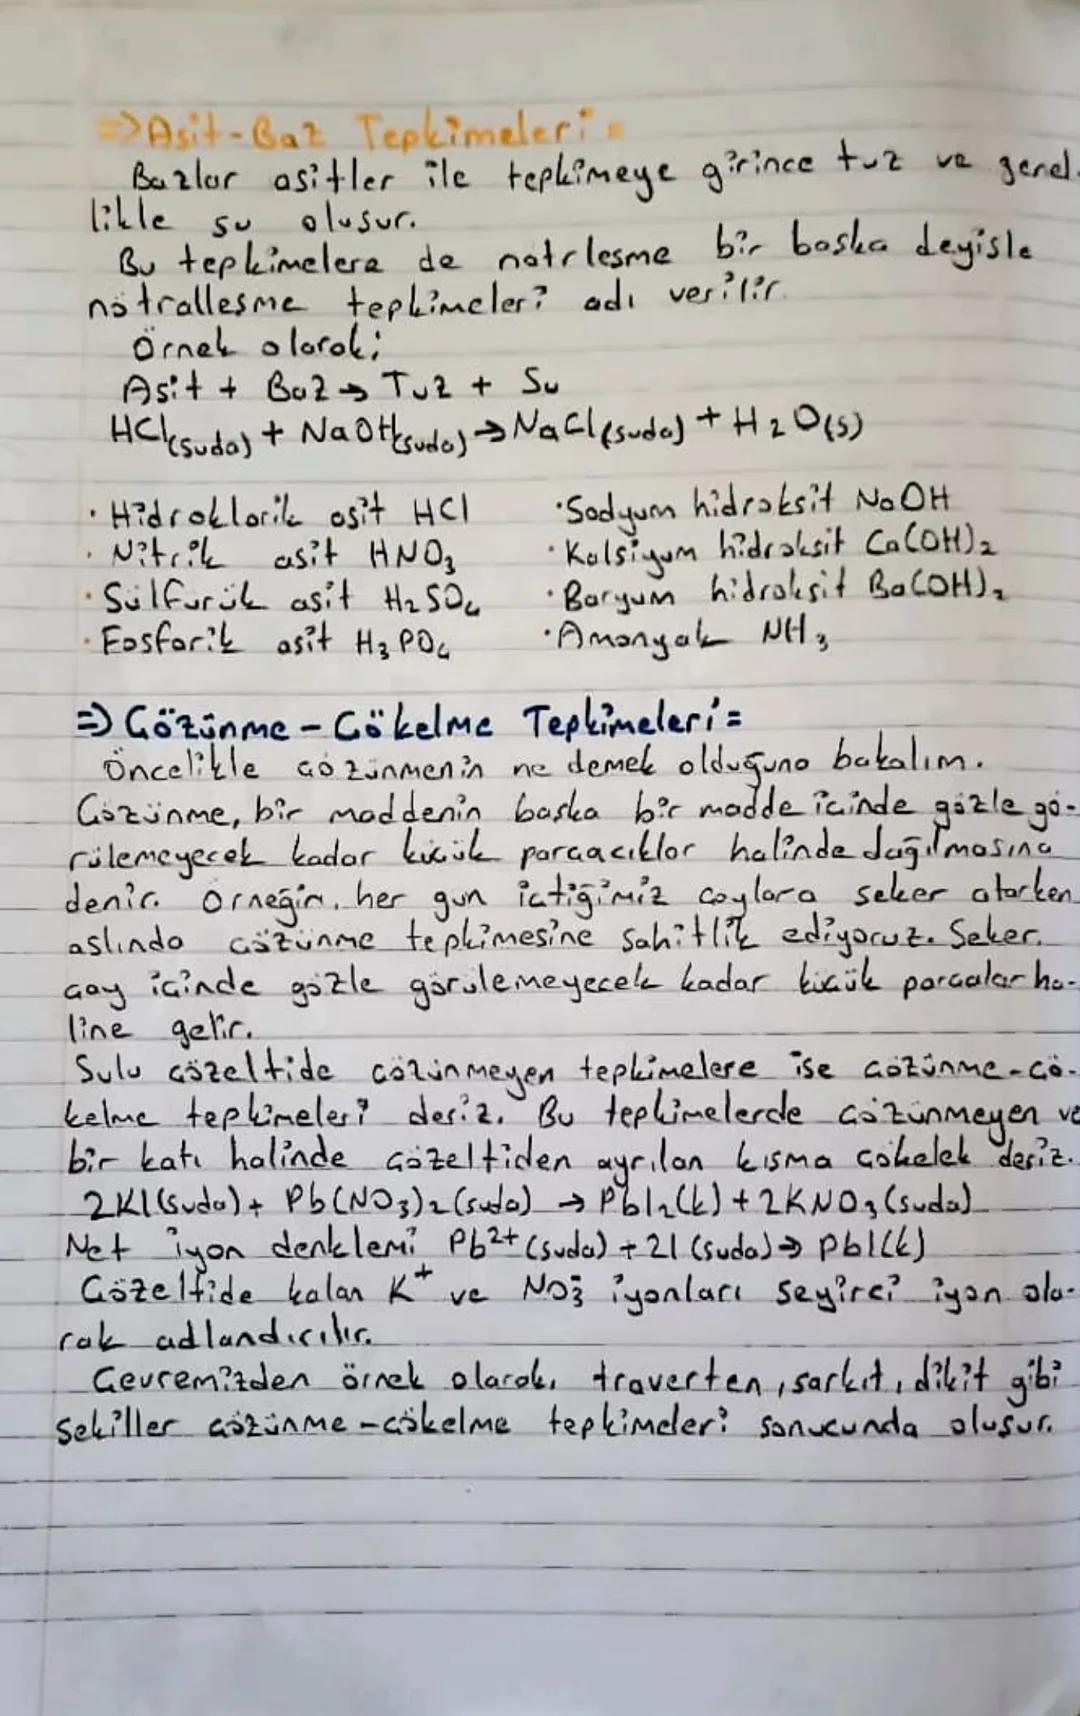 =>Asit-Baz Tepkimeleri=
Bazlar asitler ile tepkimeye girince tuz ve genel-
likle su oluşur.
Bu tepkimelere de nötrleşme bir başka deyişle
nötralleşme tepkimeleri adı verilir.
Örnek olarak;
Asit + Baz → Tuz + Su
HCl(suda) + NaOH(suda) → NaCl(suda) + H2O(s)
· Hidroklorik asit HCl ·Sodyum hidroksit NaOH
· Nitrik asit HNO3 ·Kalsiyum hidroksit Ca(OH)2
· Sülfürük asit H2SO4 ·Baryum hidroksit Ba(OH)2
· Fosforik asit H3PO4 ·Amonyak NH3
=> Çözünme - Çökelme Tepkimeleri=
Öncelikle çözünmenin ne demek olduğuna bakalım.
Çözünme, bir maddenin başka bir madde içinde gözle gö-
rülemeyecek kadar küçük parçacıklar halinde dağılmasına
denir. Örneğin, her gün içtiğimiz çaylara şeker atarken
aslında çözünme tepkimesine şahitlik ediyoruz. Şeker,
çay içinde gözle görülemeyecek kadar küçük parçalar ha-
line gelir.
Sulu çözeltide çözünmeyen tepkimelere ise çözünme-çö-
kelme tepkimeleri deriz. Bu tepkimelerde çözünmeyen ve
bir katı halinde çözeltiden ayrılan kısma çökelek deriz.
2KI(suda) + Pb(NO3)2(suda) → PbI2(k) + 2KNO3(suda)
Net iyon denklemi Pb2+(suda) + 2I(suda) → PbI(k)
Çözeltide kalan K+ ve NO3- iyonları seyirci iyon ola-
rak adlandırılır.
Çevremizden örnek olarak, traverten, sarkıt, dikit gibi
şekiller çözünme-çökelme tepkimeleri sonucunda oluşur.